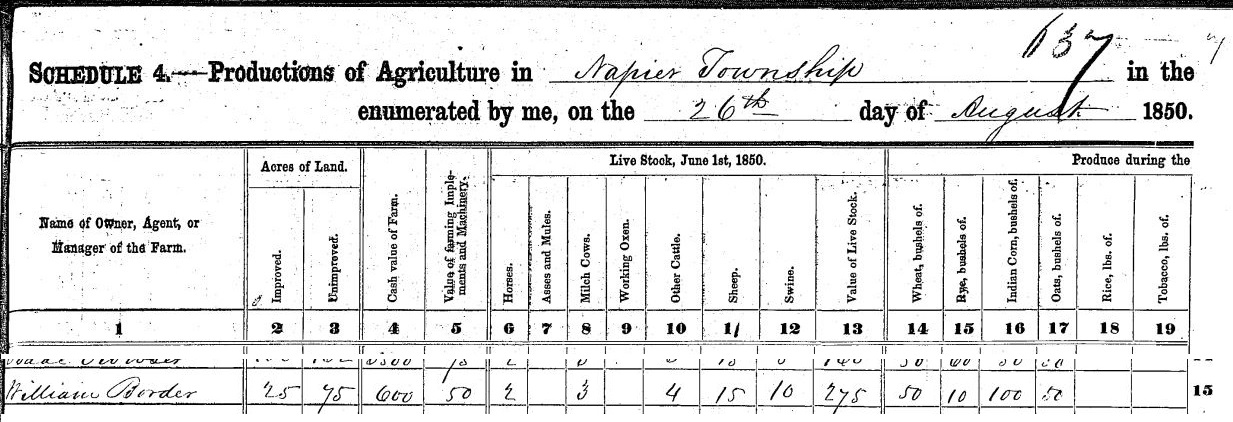 137
SCHEDULE 4.—Productions of Agriculture in Napier Township in the
enumerated by me, on the 26th day of August 1850.
Acres of Land. Live Stock, June 1st, 1850. Produce during the
Name of Owner, Agent, or
Manager of the Farm.
Improved.
Unimproved.
Cash value of Farm.
Value of farming Imple-
ments and Machinery.
Horses.
Asses and Mules.
Milch Cows.
Working Oxen.
Other Cattle.
Sheep.
Swine.
Value of Live Stock.
Wheat, bushels of.
Rye, bushels of.
Indian Corn, bushels of.
Oats, bushels of.
Rice, lbs. of.
Tobacco, lbs. of.
1 2 3 4 5 6 7 8 9 10 11 12 13 14 15 16 17 18 19
William Border 25 75 600 50 2 3 4 15 10 275 50 10 100 50 15